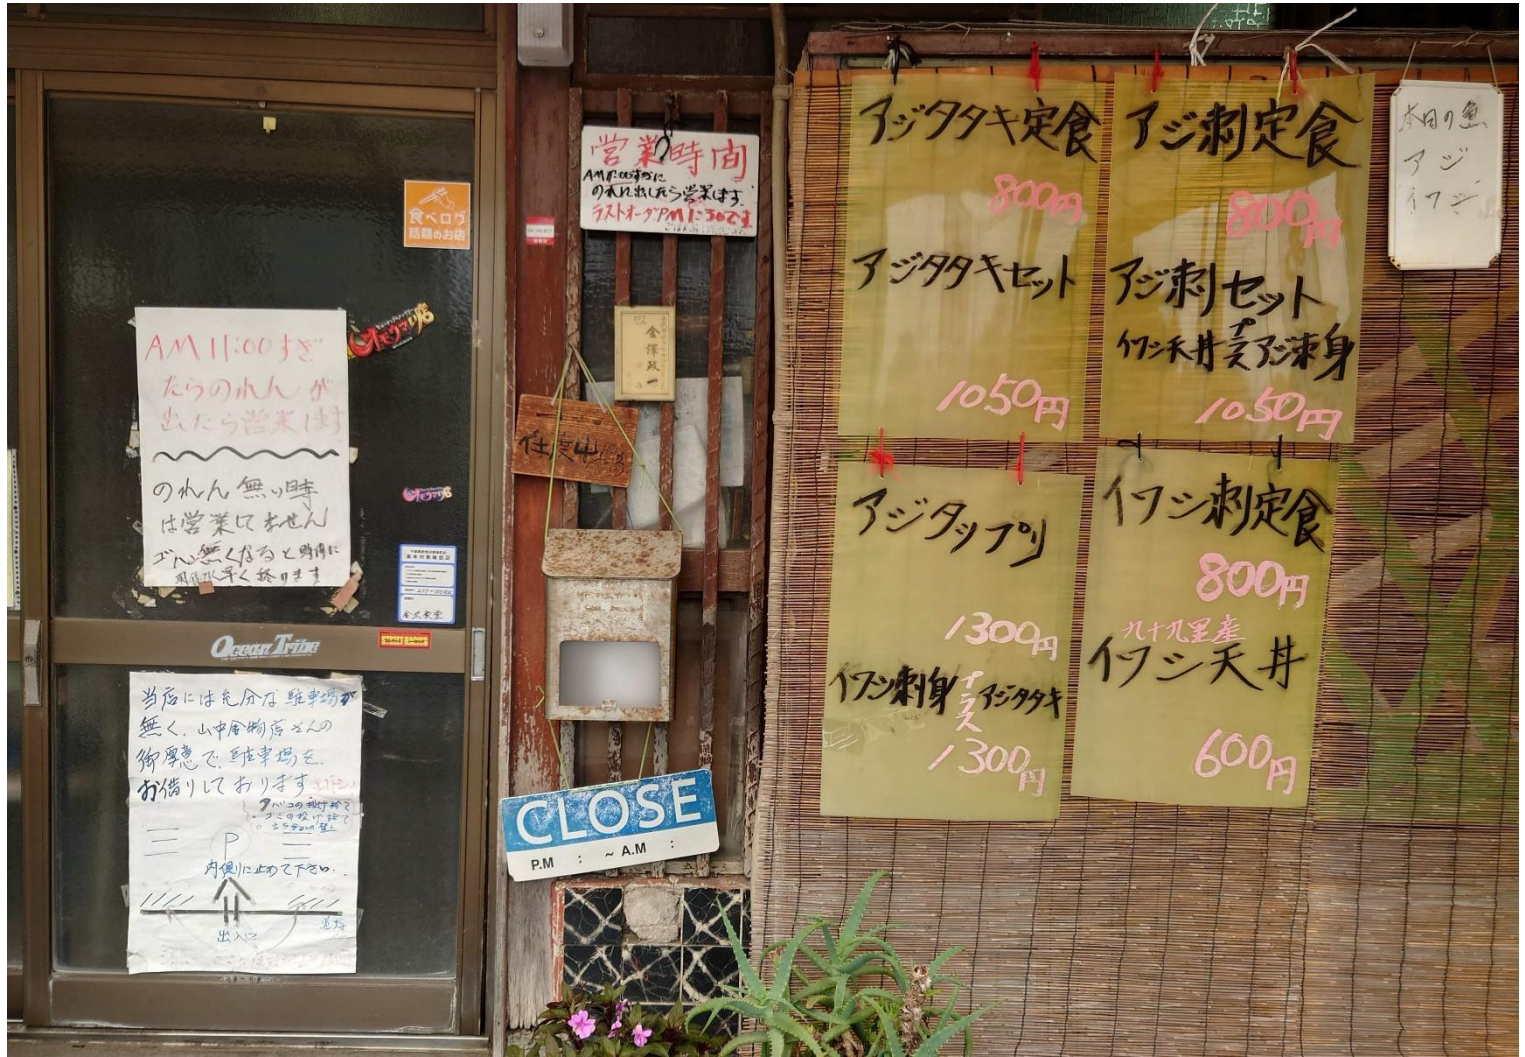 AM 11:00すぎ
たらのれんが
出たら営業します
のれん無い時
は営業してません
ごはん無くなると時間に
早く終ります
食べログ
話題のお店
オモウマい店
オモウマい店
金沢食堂
Ocean Tribe
当店には充分な駐車場が
無く、山中金物店さんの
御厚意で、駐車場を、
お借りしております
タバコの投げ捨て
ゴミの投げ捨て
P
内側に止めて下さい.
出入口
道路
営業時間
AM11:00すぎに
のれん出したら営業します.
ラストオーダPM1:30です
金澤政一
仕度中
CLOSE
P.M : ~ A.M :
アジタタキ定食
800円
アジタタキセット
1050円
アジ刺定食
800円
アジ刺セット
イワシ天丼プラスアジ刺身
1050円
アジタップリ
1300円
イワシ刺身プラスアジタタキ
1300円
イワシ刺定食
800円
九十九里産
イワシ天丼
600円
本日の魚
アジ
イワシ